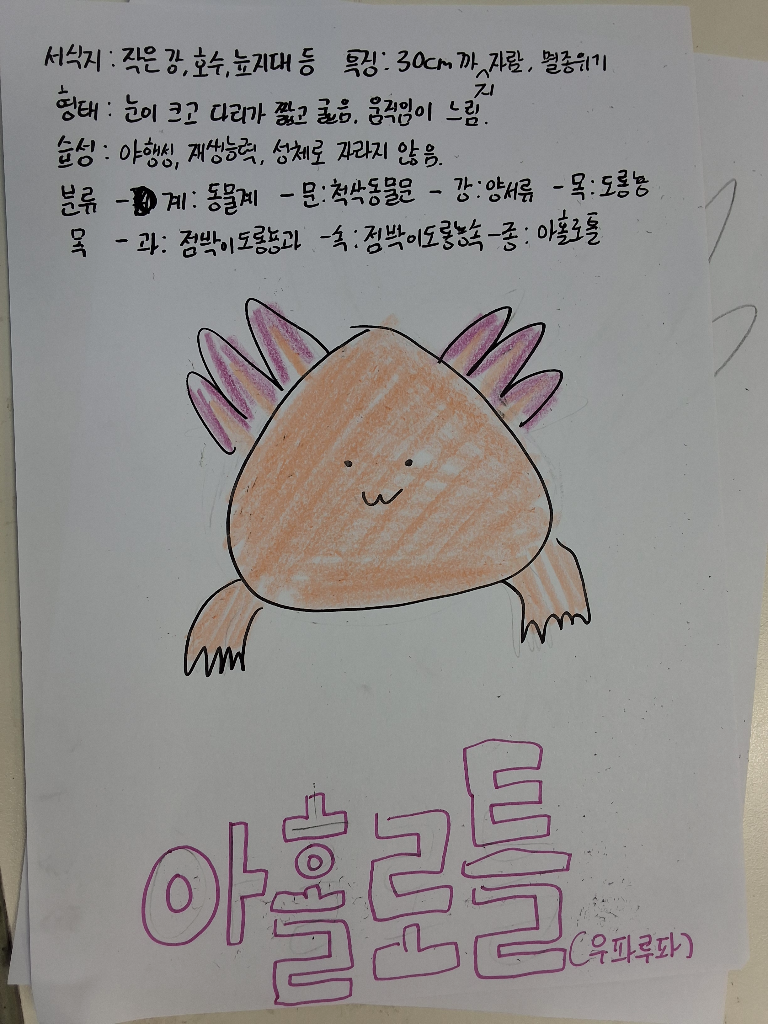 서식지 : 작은 강, 호수, 늪지대 등 특징 : 30cm까지 자람, 멸종위기
형태 : 눈이 크고 다리가 짧고 굵음, 움직임이 느림.
습성 : 야행성, 재생능력, 성체로 자라지 않음.
분류 - 계 : 동물계 - 문 : 척삭동물문 - 강 : 양서류 - 목 : 도롱뇽
목 - 과 : 점박이도롱뇽과 - 속 : 점박이도롱뇽속 - 종 : 아홀로틀
아홀로틀
(우파루파)